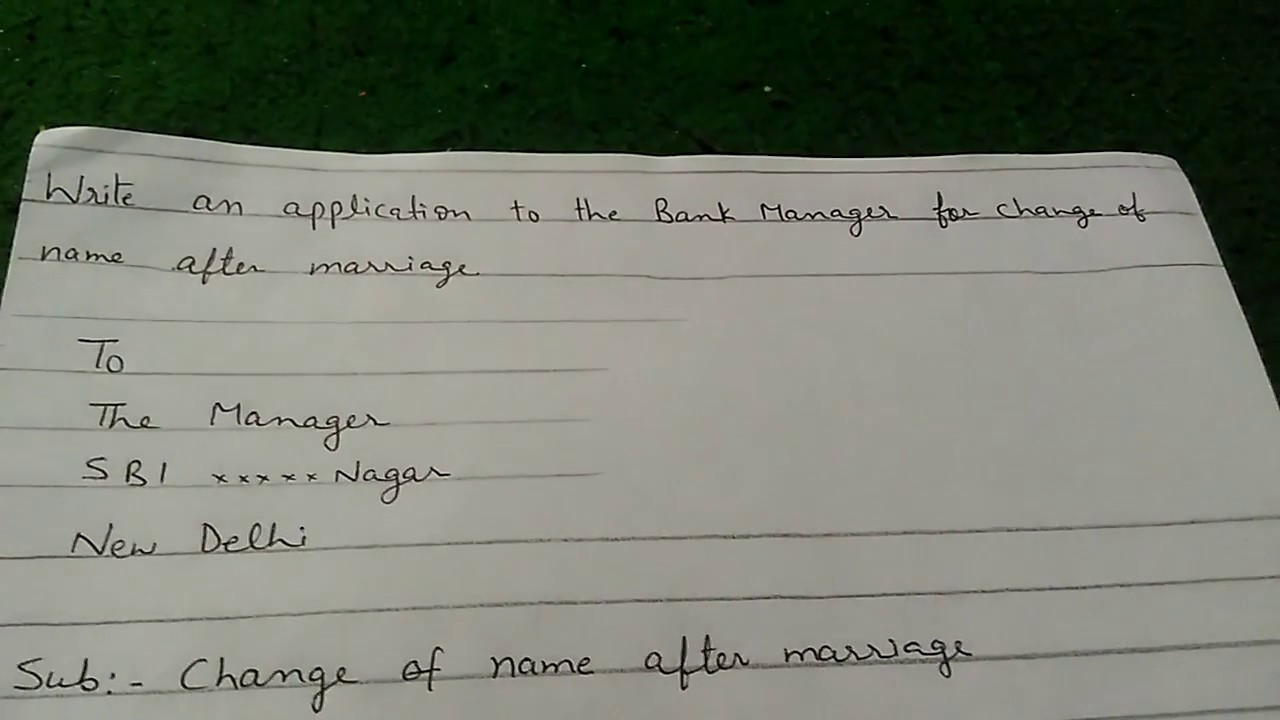 Write an application to the Bank Manager for change of
name after marriage
To
The Manager
SBI xxxxx Nagar
New Delhi
Sub:- Change of name after marriage